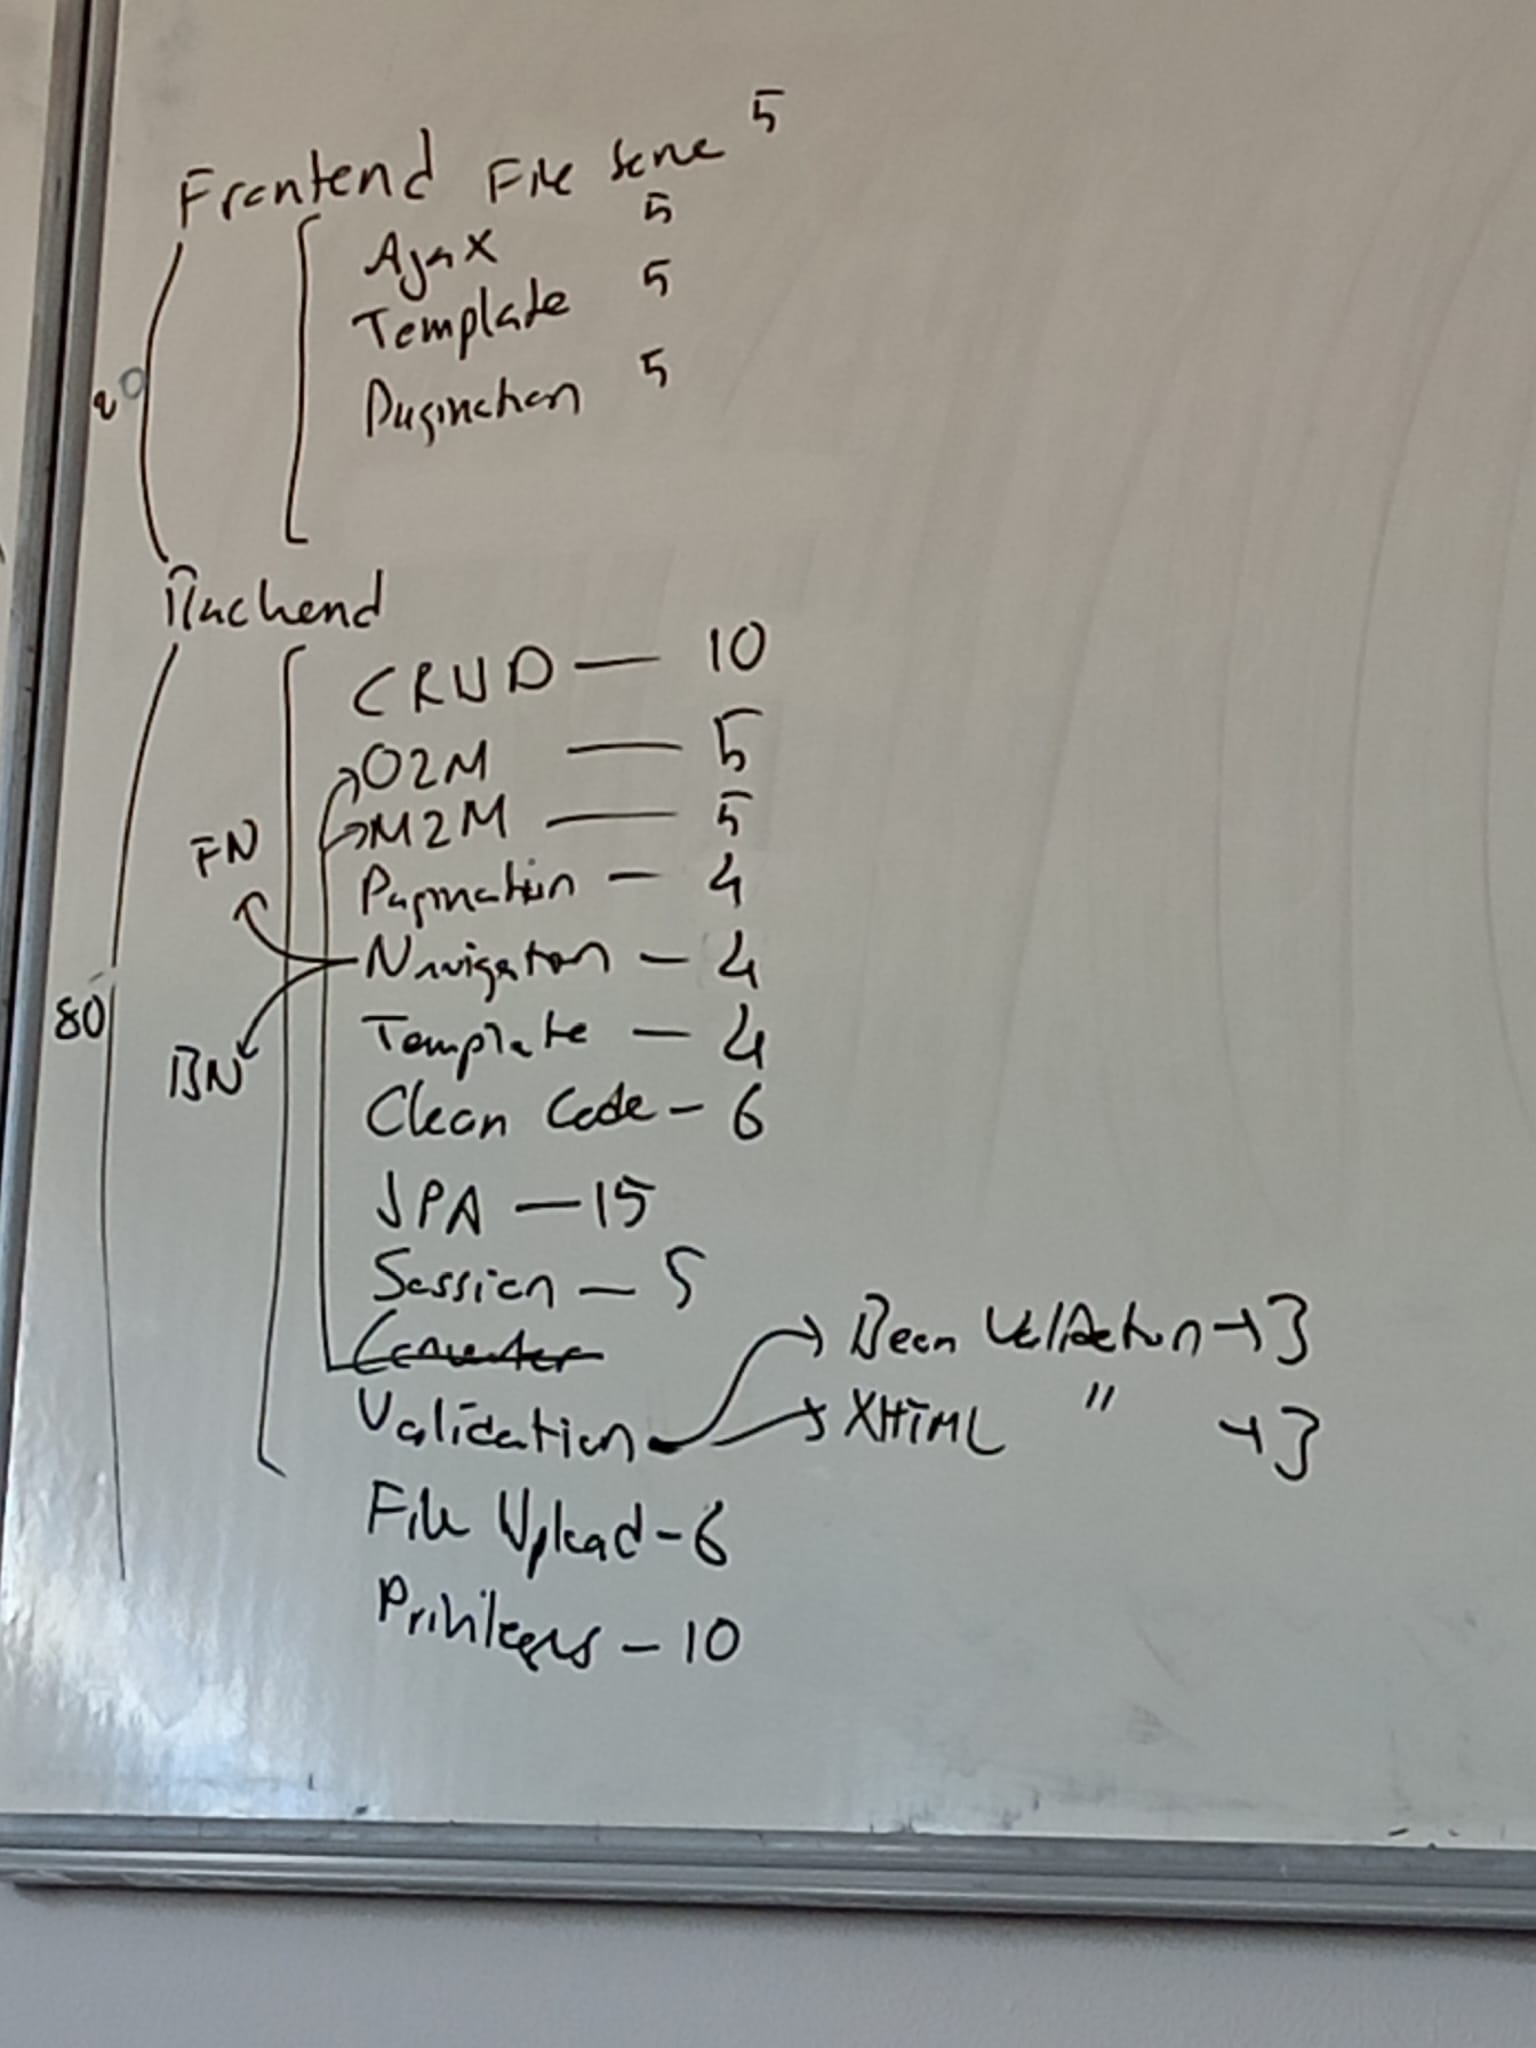 Frontend File Serve 5
Ajax 5
Template 5
Pagination 5
20
Backend
CRUD — 10
O2M — 5
M2M — 5
FN
Pagination — 4
Navigation — 4
80
Template — 4
BN
Clean Code — 6
JPA — 15
Session — 5
Converter
Bean Validation → 3
Validation
XHTML " → 3
File Upload - 6
Privileges - 10